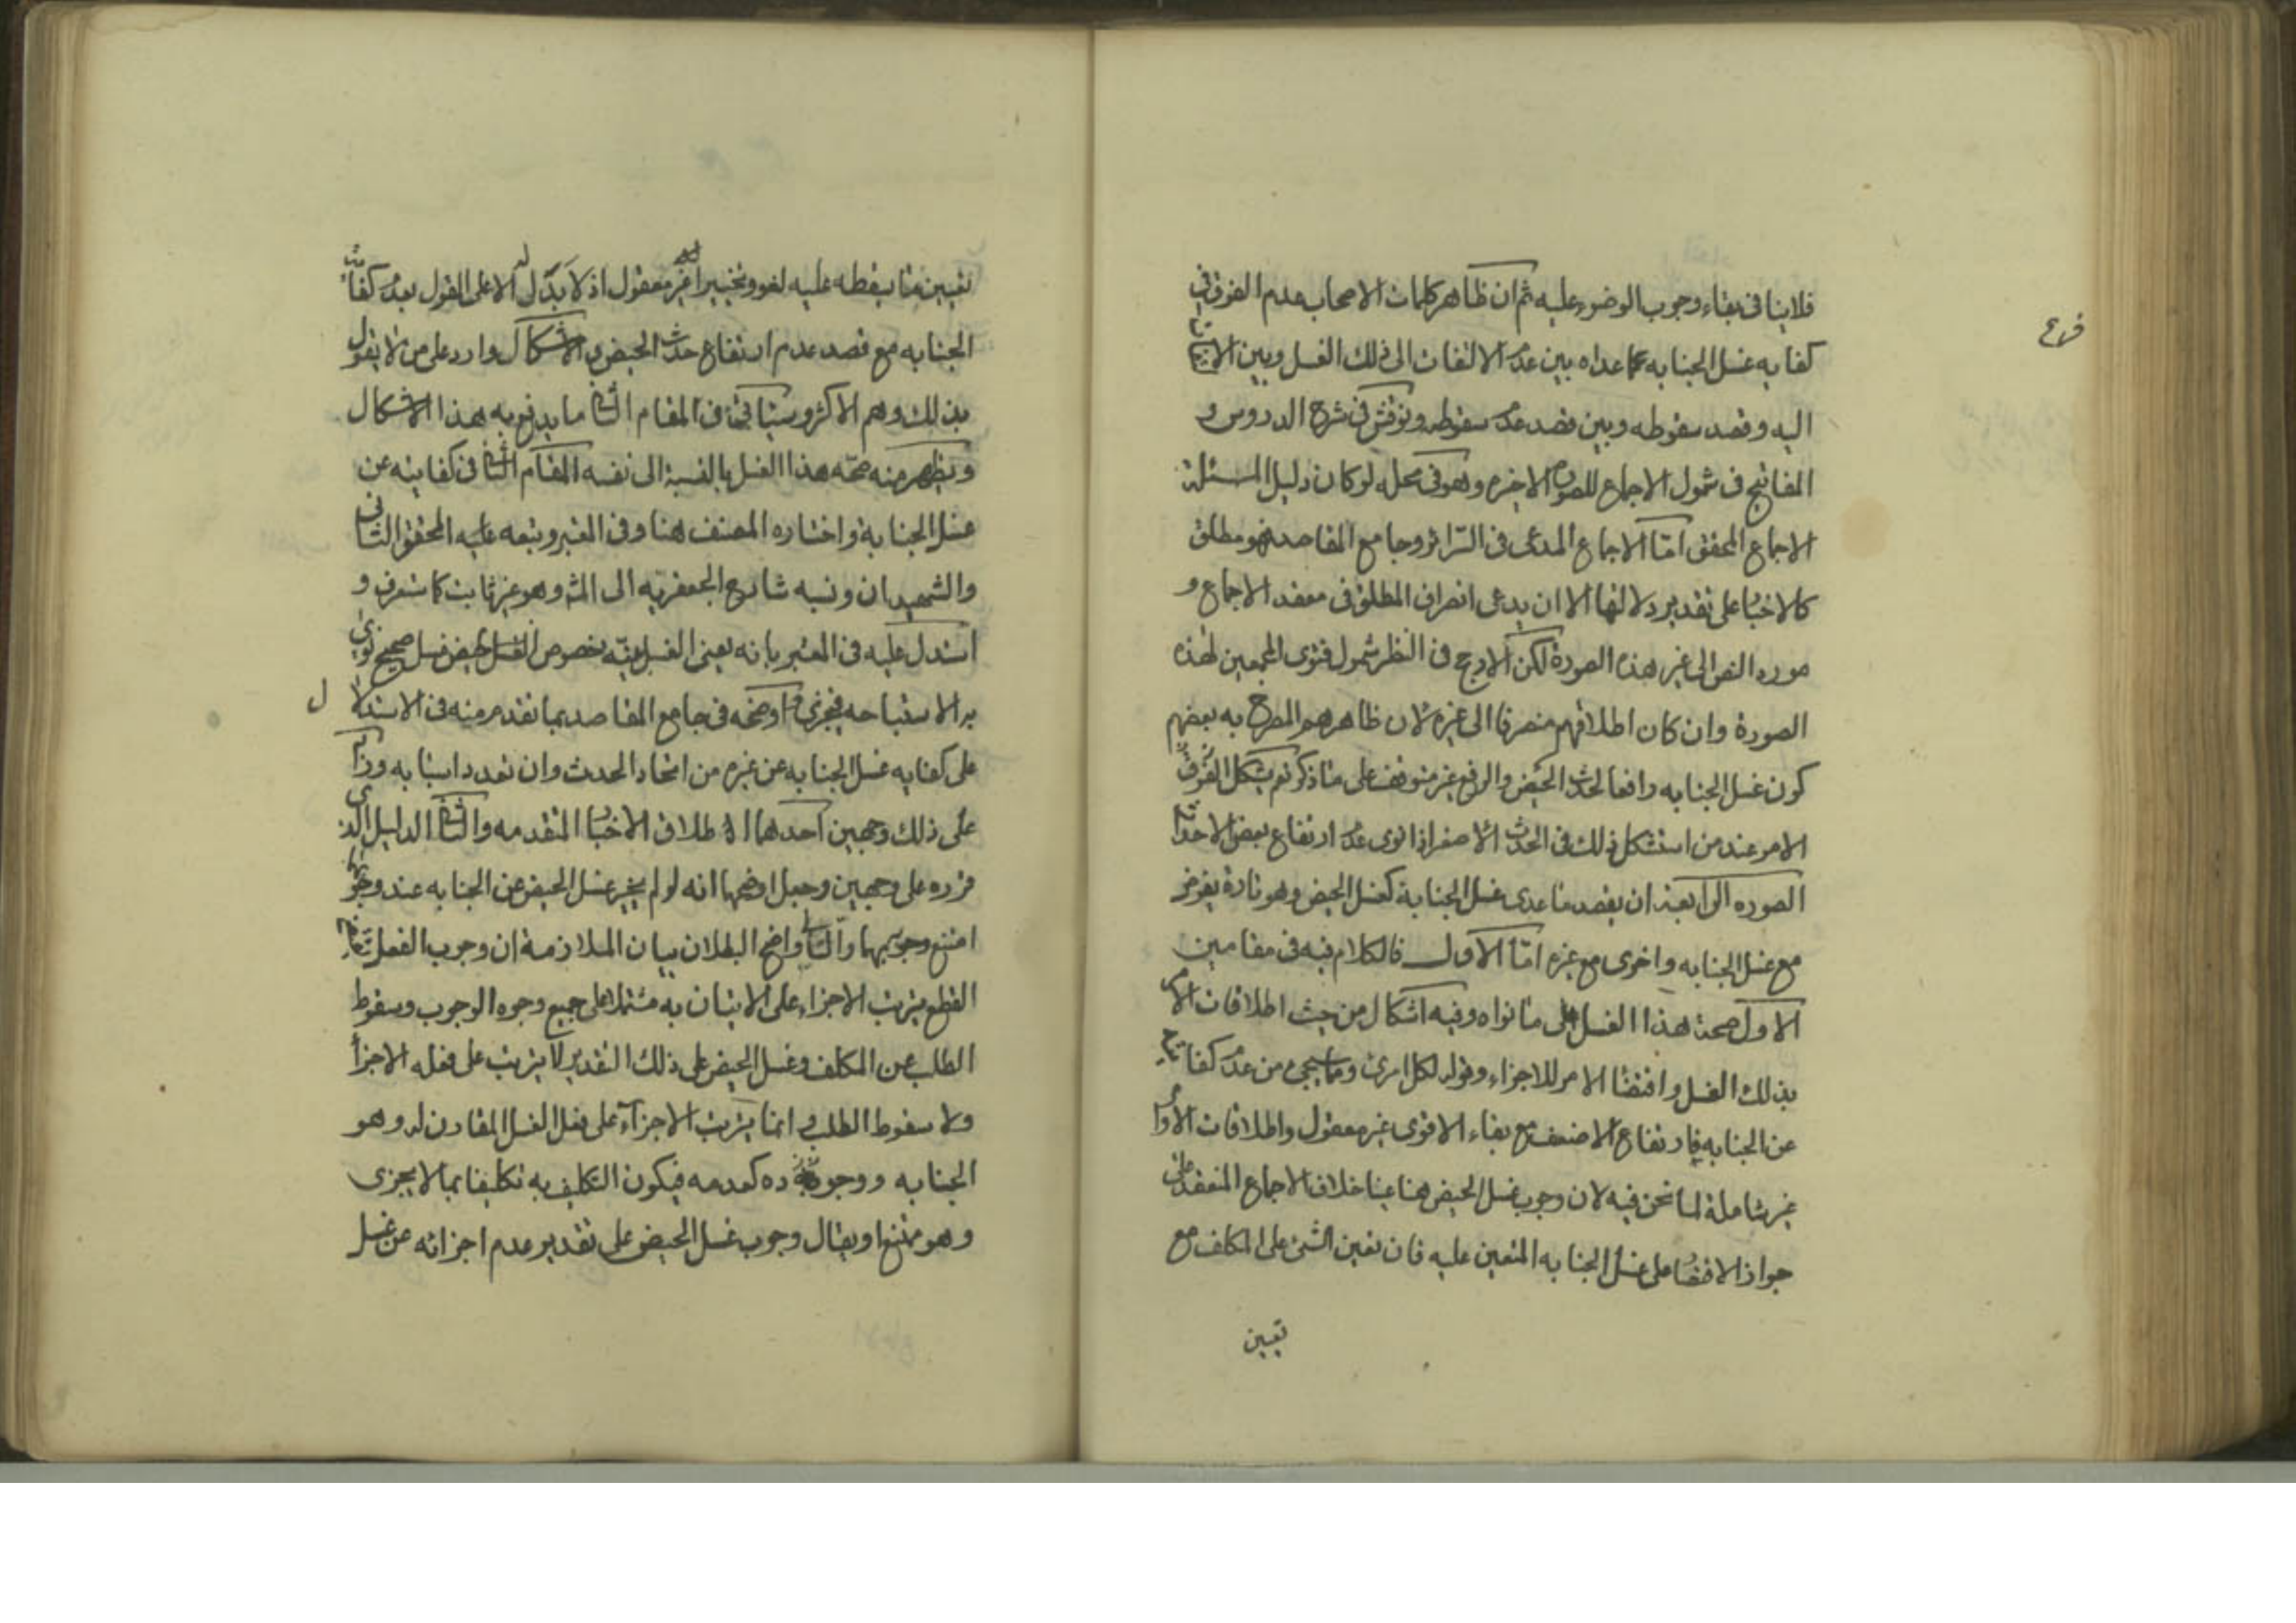 فلاينافى بقاء وجوب الوضوء عليه ثم ان ظاهر كلمات الاصحاب عدم الفرق فى
فرع
كفايه غسل الجنابه عما عداه بين عدم الالتفات الى ذلك الغسل وبين الالتفات
اليه وقصد سقوطه وبين قصد عدم سقوطه ونوقش فى شرح الدروس و
المفاتيح فى شمول الاجماع للصوره الاخيره وهو فى محله لو كان دليل المسئلة
الاجماع المحقق امّا الاجماع المدعى فى السّرائر وجامع المقاصد فهو مطلق
كالاخبار على تقدير دلالتها الا ان يدعى انصراف المطلق فى معقد الاجماع و
مورد النص الى غير هذه الصورة لكن الارجح فى النظر شمول فتوى المجمعين لهذه
الصورة وان كان اطلاقهم منصرفا الى غيره لان ظاهرهم المصرح به بعضهم
كون غسل الجنابه رافعا لحدث الحيض والرفع غير متوقف على ماذكر نعم يشكل الفرق
الامر عند من استشكل ذلك فى الحدث الاصغر اذا نوى عدم ارتفاع بعض الاحداث
الصوره الرابعة ان يقصد ماعدى غسل الجنابة كغسل الحيض وهو تارة يفرض
مع غسل الجنابه واخرى مع غيره امّا الاول فالكلام فيه فى مقامين
الاول صحة هذا الغسل على مانواه وفيه اشكال من حيث اطلاقات الامر
بذلك الغسل واقتضا الامر للاجزاء وقوله لكل امرئ وماسيجئ من عدم كفايته
عن الجنابه فارتفاع الاضعف مع بقاء الاقوى غير معقول واطلاقات الاوامر
غير شاملة لما نحن فيه لان وجوب غسل الحيض هنا عينا خلاف الاجماع المنعقد على
جواز الاقتصا على غسل الجنابه المتعين عليه فان تعين الشئ على المكلف مع
تعيين
تعيين مايسقطه عليه لغو وتخييرا غير معقول اذ لابدل له الا على القول بعدم كفايت
الجنابه مع قصد عدم ارتفاع حدث الحيض والاشكال وارد على من لايقول
بذلك وهم الاكثر وسياتى فى المقام الثانى مايدفع به هذا الاشكال
ويظهر منه صحّه هذا الغسل بالنسبة الى نفسه المقام الثانى فى كفايته عن
غسل الجنابة واختاره المصنف هنا وفى المعتبر وتبعه عليه المحقق الثانى
والشهيدان ونسبه شارح الجعفريّه الى المش وهو غير ثابت كما ستعرف و
استدل عليه فى المعتبر بانه يعنى الغسل بنيّه خصوص الغسل الحيض غسل صحيح نوى
به الاستباحه فيجزى واوضحه فى جامع المقاصد بما تقدم منه فى الاستدلا ل
على كفايه غسل الجنابه عن غيره من اتحاد الحدث وان تعدد اسبابه وزاد
على ذلك وجهين احدهما الاطلاق الاخبار المتقدمه والثانى الدليل الذى
قرره على وجهين وجعل اوضحها انه لو لم يجز غسل الحيض عن الجنابه عند وجوبهما
امتنع وجوبهما والتالى واضح البطلان بيان الملازمة ان وجوب الفعل
القطع بترتب الاجزاء على الاتيان به مشتملا على جميع وجوه الوجوب وسقوط
الطلب عن المكلف وغسل الحيض على ذلك التقدير لايترتب على فعله الاجزأ
ولا سقوط الطلب وانما يترتب الاجزآء على فعل الغسل المقارن له وهو
الجنابه ووجوده كعدمه فيكون التكليف به تكليفا بما لايجزى
وهو ممتنع او يقال وجوب غسل الحيض على تقدير عدم اجزائه عن غسل